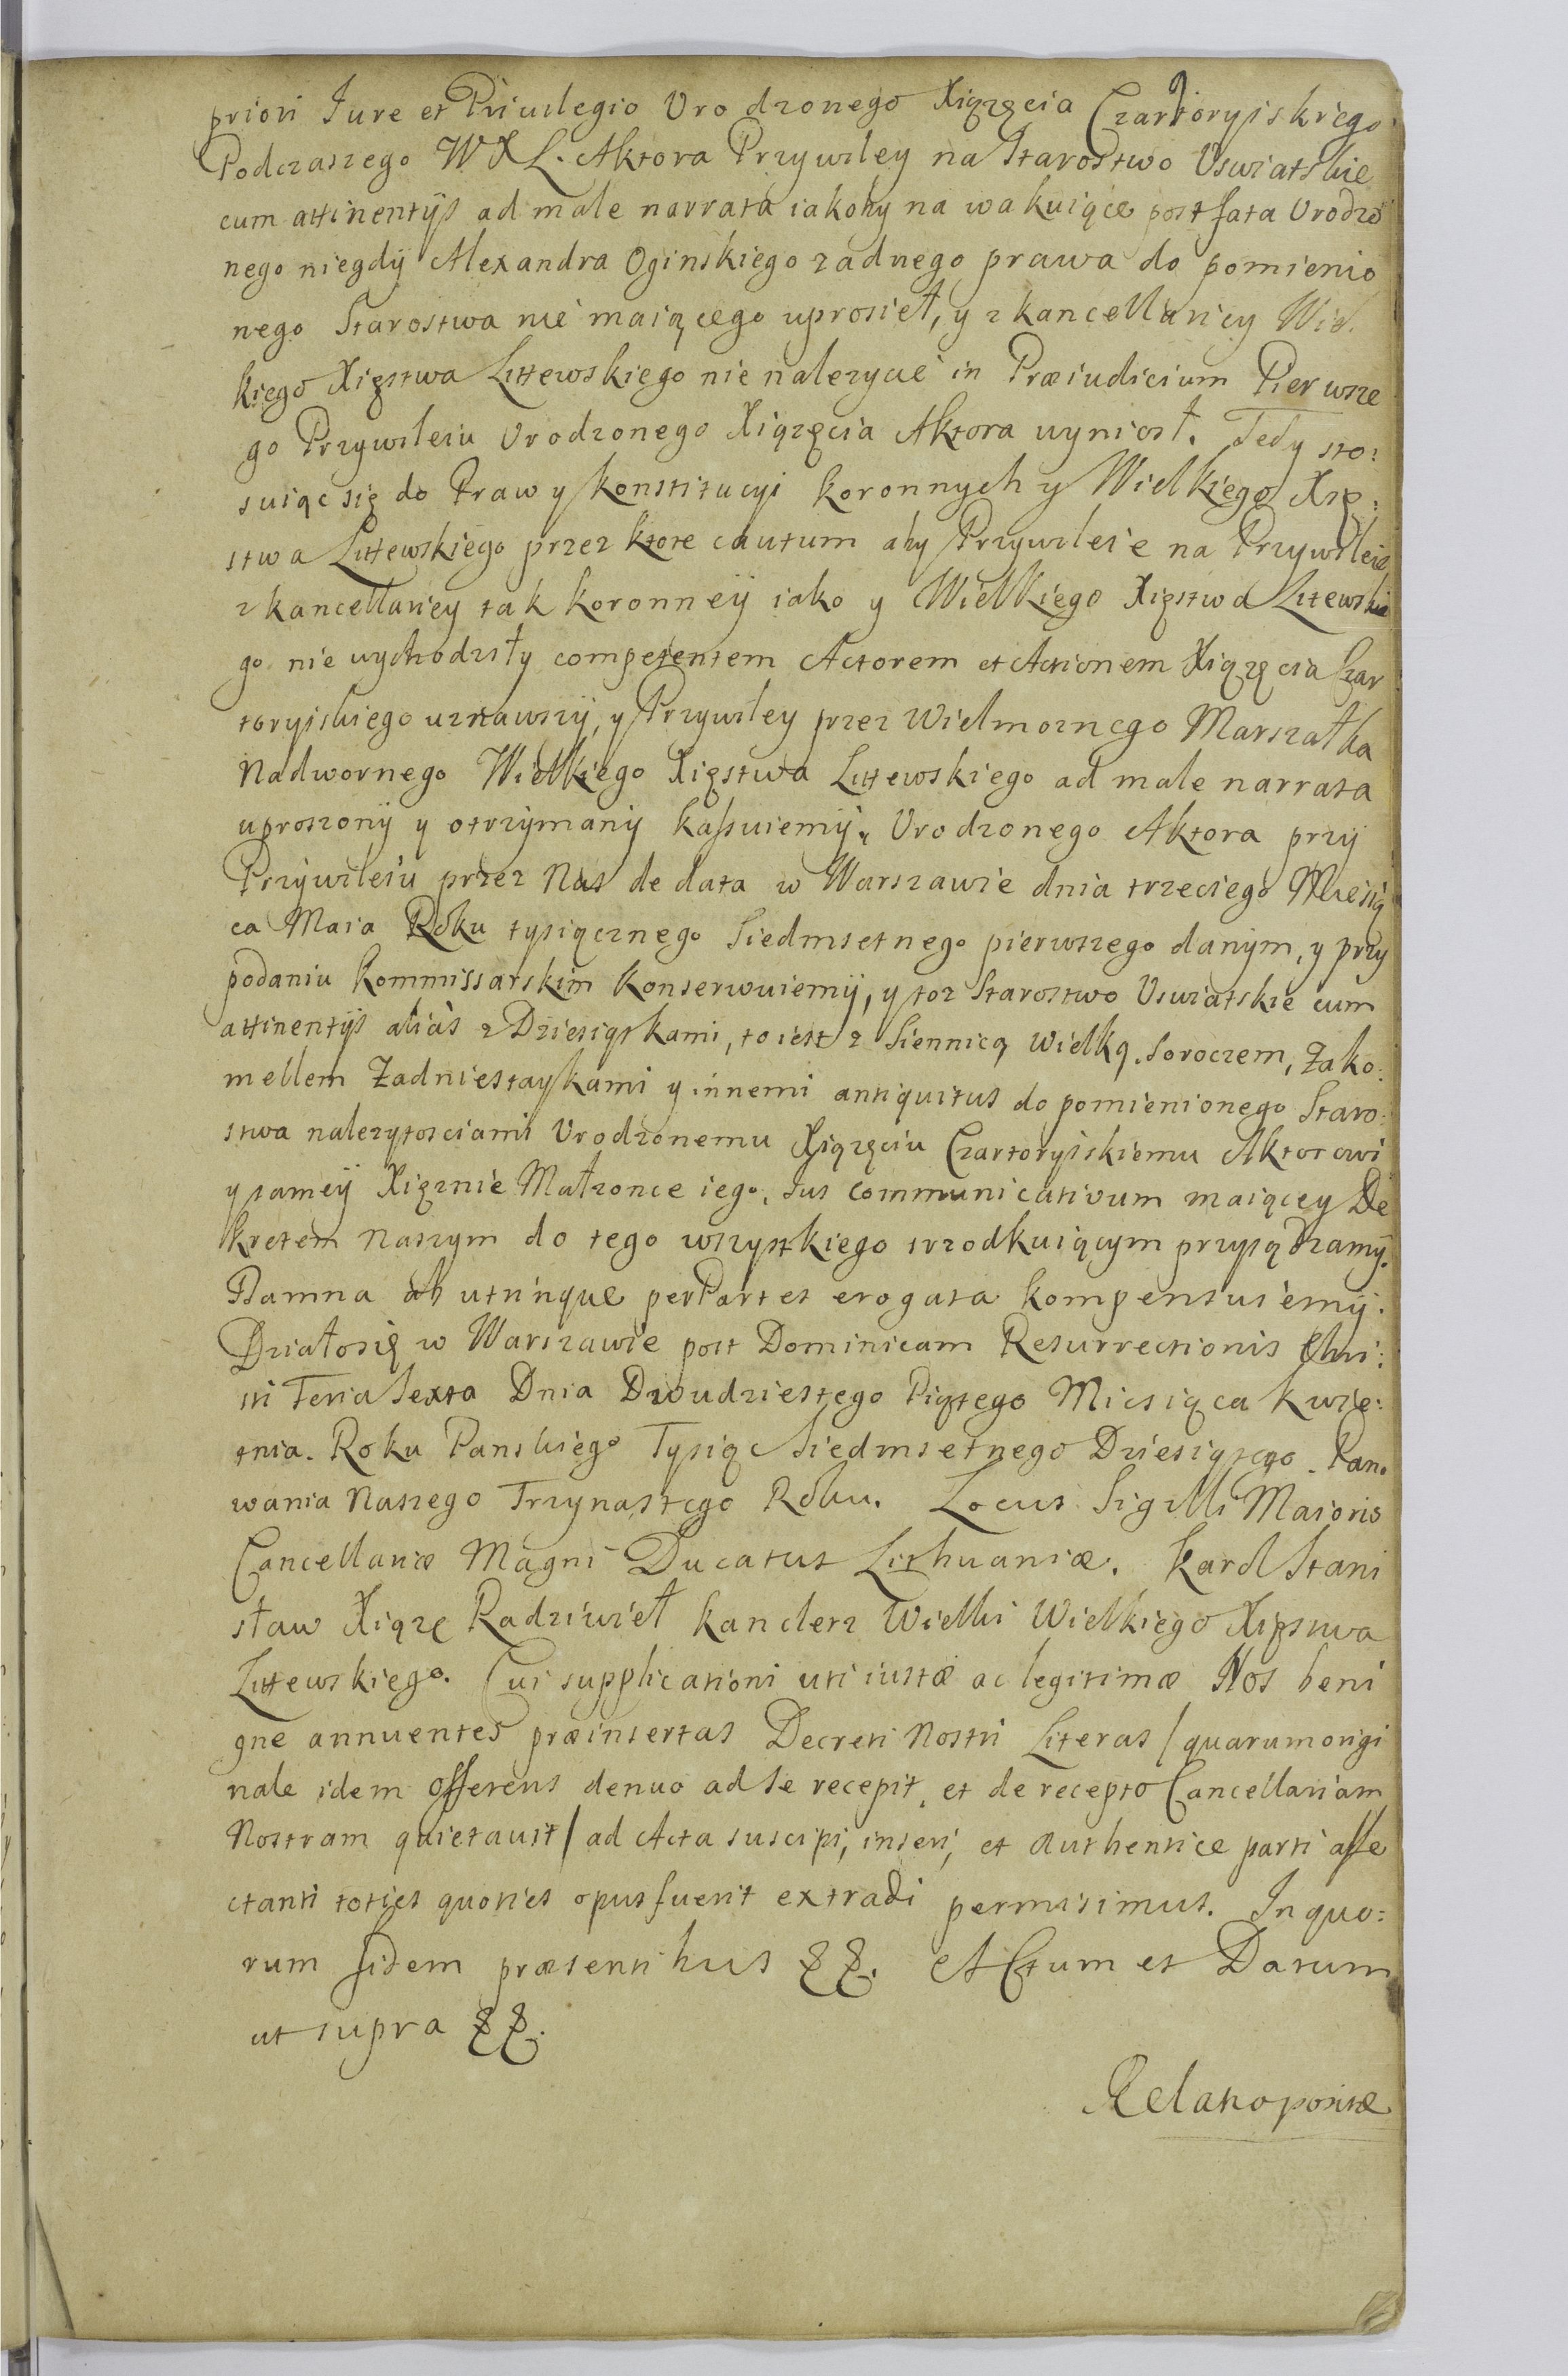 priori Jure et Priuilegio Urodzonego Xiążęcia Czartoryiskiego
Podczaszego W X L. Aktora Przywiley na Starostwo Uswiatskie
cum attinentijs ad male narrata iakoby na wakuiące post fata Urodzo
nego niegdÿ Alexandra Oginskiego zadnego prawa do pomienio
nego Starostwa nie maiącego uprosieł, y z kancellariey Wiel
kiego Xięstwa Littewskiego nie nalezycie in Præiudicium Pierwsze
go Przywileiu Urodzonego Xiążęcia Aktora wyniosł. Tedy sto:
suiąc się do Praw y konstitucyi koronnych y Wielkiego Xię:
stwa Littewskiego przez ktore cautum aby Przywileie na Przywileie
z kancellariey tak koronneÿ iako y Wielkiego Xięstwa Litewskie
go nie wychodziły competentem Actorem et Actionem Xiążęcia Czar
toryiskiego uznawszÿ, y Przywiley przez Wielmoznego Marszałka
Nadwornego Wielkiego Xięstwa Littewskiego ad male narrata
uproszonÿ y otrzÿmanÿ kassuiemÿ, Urodzonego Aktora przÿ
Przÿwileiu przez Nas de data w Warszawie dnia trzeciego Miesią
ca Maia Roku tysiącznego Siedmsetnego pierwszego danÿm, y przy
podaniu kommissarskim konserwuiemÿ, y toz Starostwo Uswiatskie cum
attinentijs alias z Dziesiątkami, to iest z Siennicą Wielką. Soroczem, Zako:
mellem Zadniestaykami y innemi antiquitus do pomienionego Staro:
stwa nalezytosciami Urodzonemu Xiążęciu Czartoryiskiemu Aktorowi
y sameÿ Xięznie Małzonce iego, Jus communicativum maiącey De
kretem Naszym do tego wszystkiego srzodkuiącym przysądzamÿ.
Damna ab utrinque per Partes erogata kompensuiemÿ.
Działosię w Warszawie post Dominicam Resurrectionis Chri:
sti Feria Sexta Dnia Dwudziestego Piątego Miesiąca kwie:
tnia. Roku Panskiego Tysiąc Siedmsetnego Dziesiątego. Pano
wania Naszego Trzynastego Roku. Locus Sigilli Maioris
Cancellariæ Magni Ducatus Lithuaniæ. karol Stani
sław Xiąże Radziwieł kanclerz Wielki Wielkiego Xięstwa
Littewskiego. Cui supplicationi uti iustæ ac legitimæ Nos beni
gne annuentes præinsertas Decreti Nostri Literas / quarum origi
nale idem offerens denuo ad se recepit, et de recepto Cancellariam
Nostram quietavit / ad Acta suscipi, inseri, et authentice parti affe
ctanti toties quoties opus fuerit extradi permisimus. In quo:
rum fidem præsentibus &&. Actum et Datum
ut supra &&.
Relatio positæ